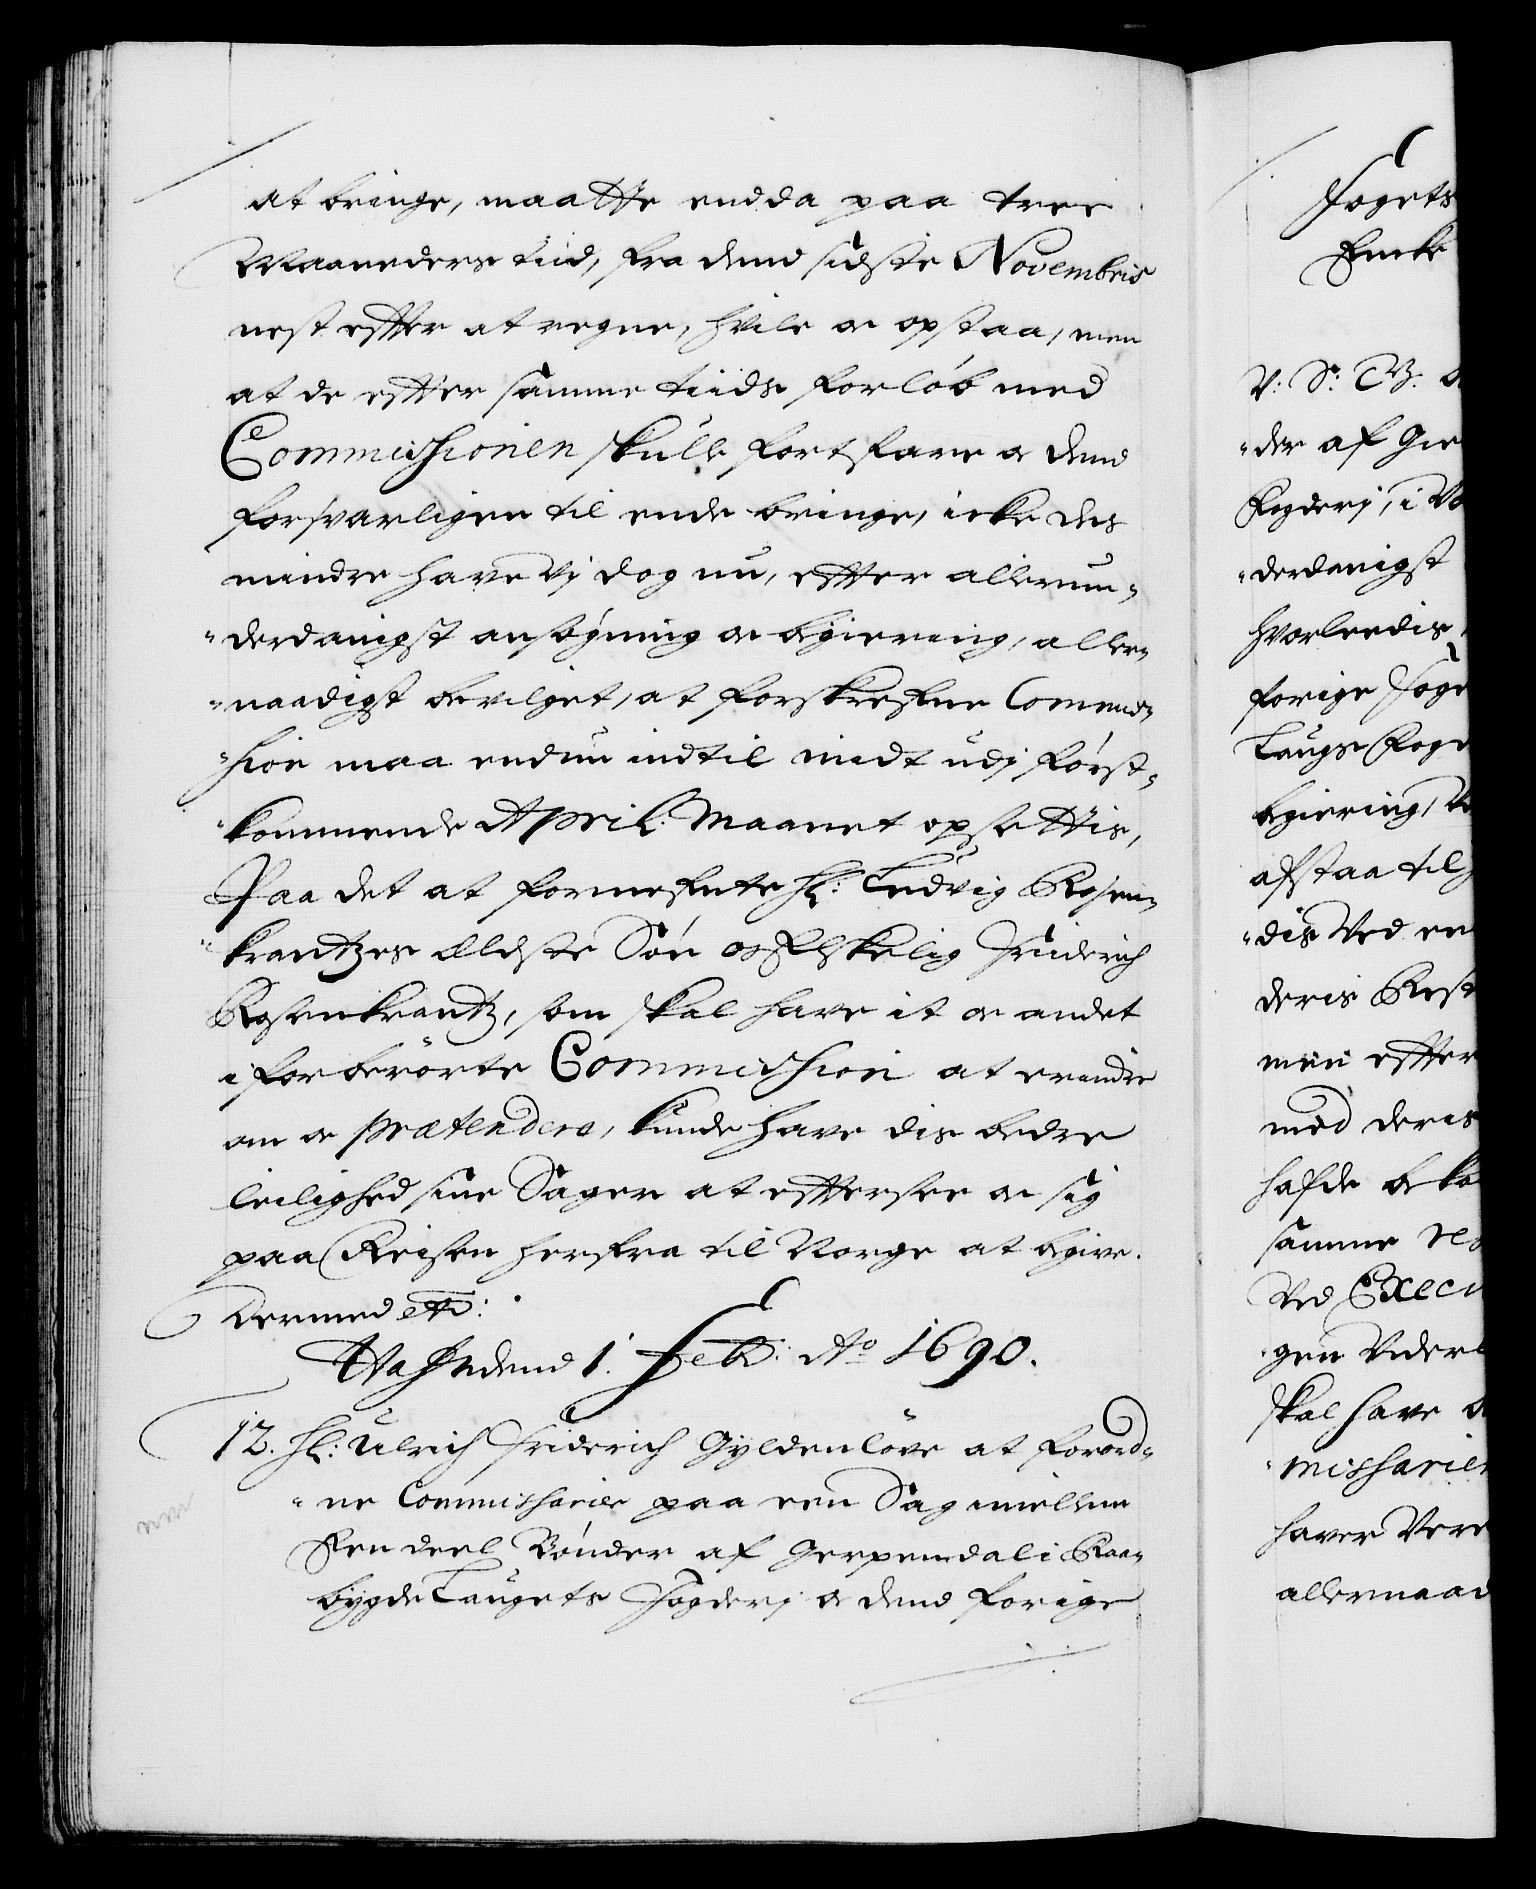 at bringe, maatte endda paa tree
Maaneders tiid, fra dend sidste Novembris
nest effter at regne, hvile oc opstaa, men
at de effter samme tiids forløb med
Commissionen skulle fortfare oc dend
forsvarligen til ende bringe, icke des
mindre have Vj dog nu, effter allerun-
-derdanigst ansøgning oc begiering, aller-
-naadigst bevilget, at forskrefne Commis-
-sion maa endnu indtil midt udj først-
-kommende April: Maanet opsettis,
Paa det at formeldte Hr: Ludvig Rosen-
-krantzes eldste Søn os Elskelig Friderich
Rosenkrantz, som skal have it oc andet
i forberørte Commission at erindre
om oc prætendere, kunde have dis bedre
leilighed sine Sager at efftersee oc sig
paa Reisen herfra til Norge at begive.
Dermed etc:
Hafn dend 1. Feb: Ao 1690.
12. Hr: Ulrich Friderich Gyldenløve at forord-
-ne Commissarier paa een Sag imellem
Een deel Bønder af Gerpendal i Raa-
bygde Laugets Fogderj oc dend forige
Fogets
Encke
V: S: G:
-der af Gie
Fogderj, i
-derdanigst
hvorledis
forige Foge
Laugs Fogd
begiering,
afstaa til
-dis Ved een
deris Rest
men effter
med deris
hafde beko
samme
Ved Execu
-gen Viderl
skal have
-missarier
haver Vere
allernaad